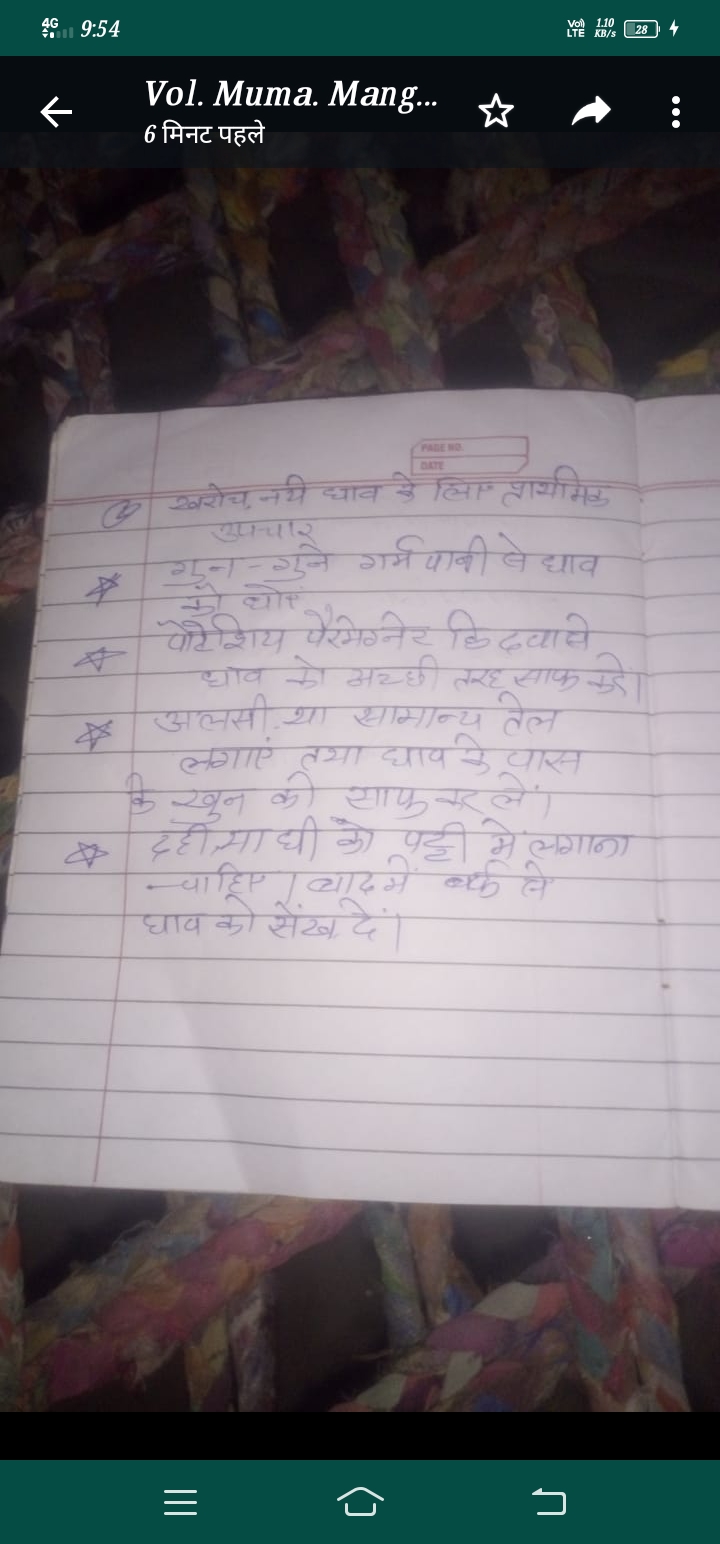 4G 9:54 Vo) LTE 1.10 KB/s 28
Vol. Muma. Mang...
6 मिनट पहले
PAGE NO.
DATE
खरोच, नये घाव के लिए प्राथमिक
उपचार
गुन-गुने गर्म पानी से घाव
को धोए
पोटेशिय पैरमेग्नेट कि दवा से
घाव को अच्छी तरह साफ करें।
अलसी या सामान्य तेल
लगाएं तथा घाव के पास
के खुन को साफ कर लें।
दही, या घी को पट्टी में लगाना
चाहिए। बाद में बर्फ से
घाव को सेंख दें।